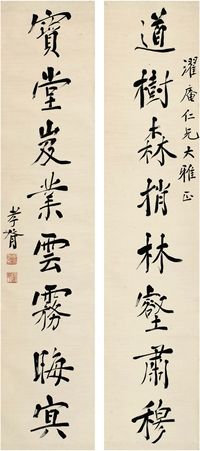 道樹森梢林壑肅穆
濯庵仁兄大雅正
寶堂岌業雲霧晦冥
孝胥